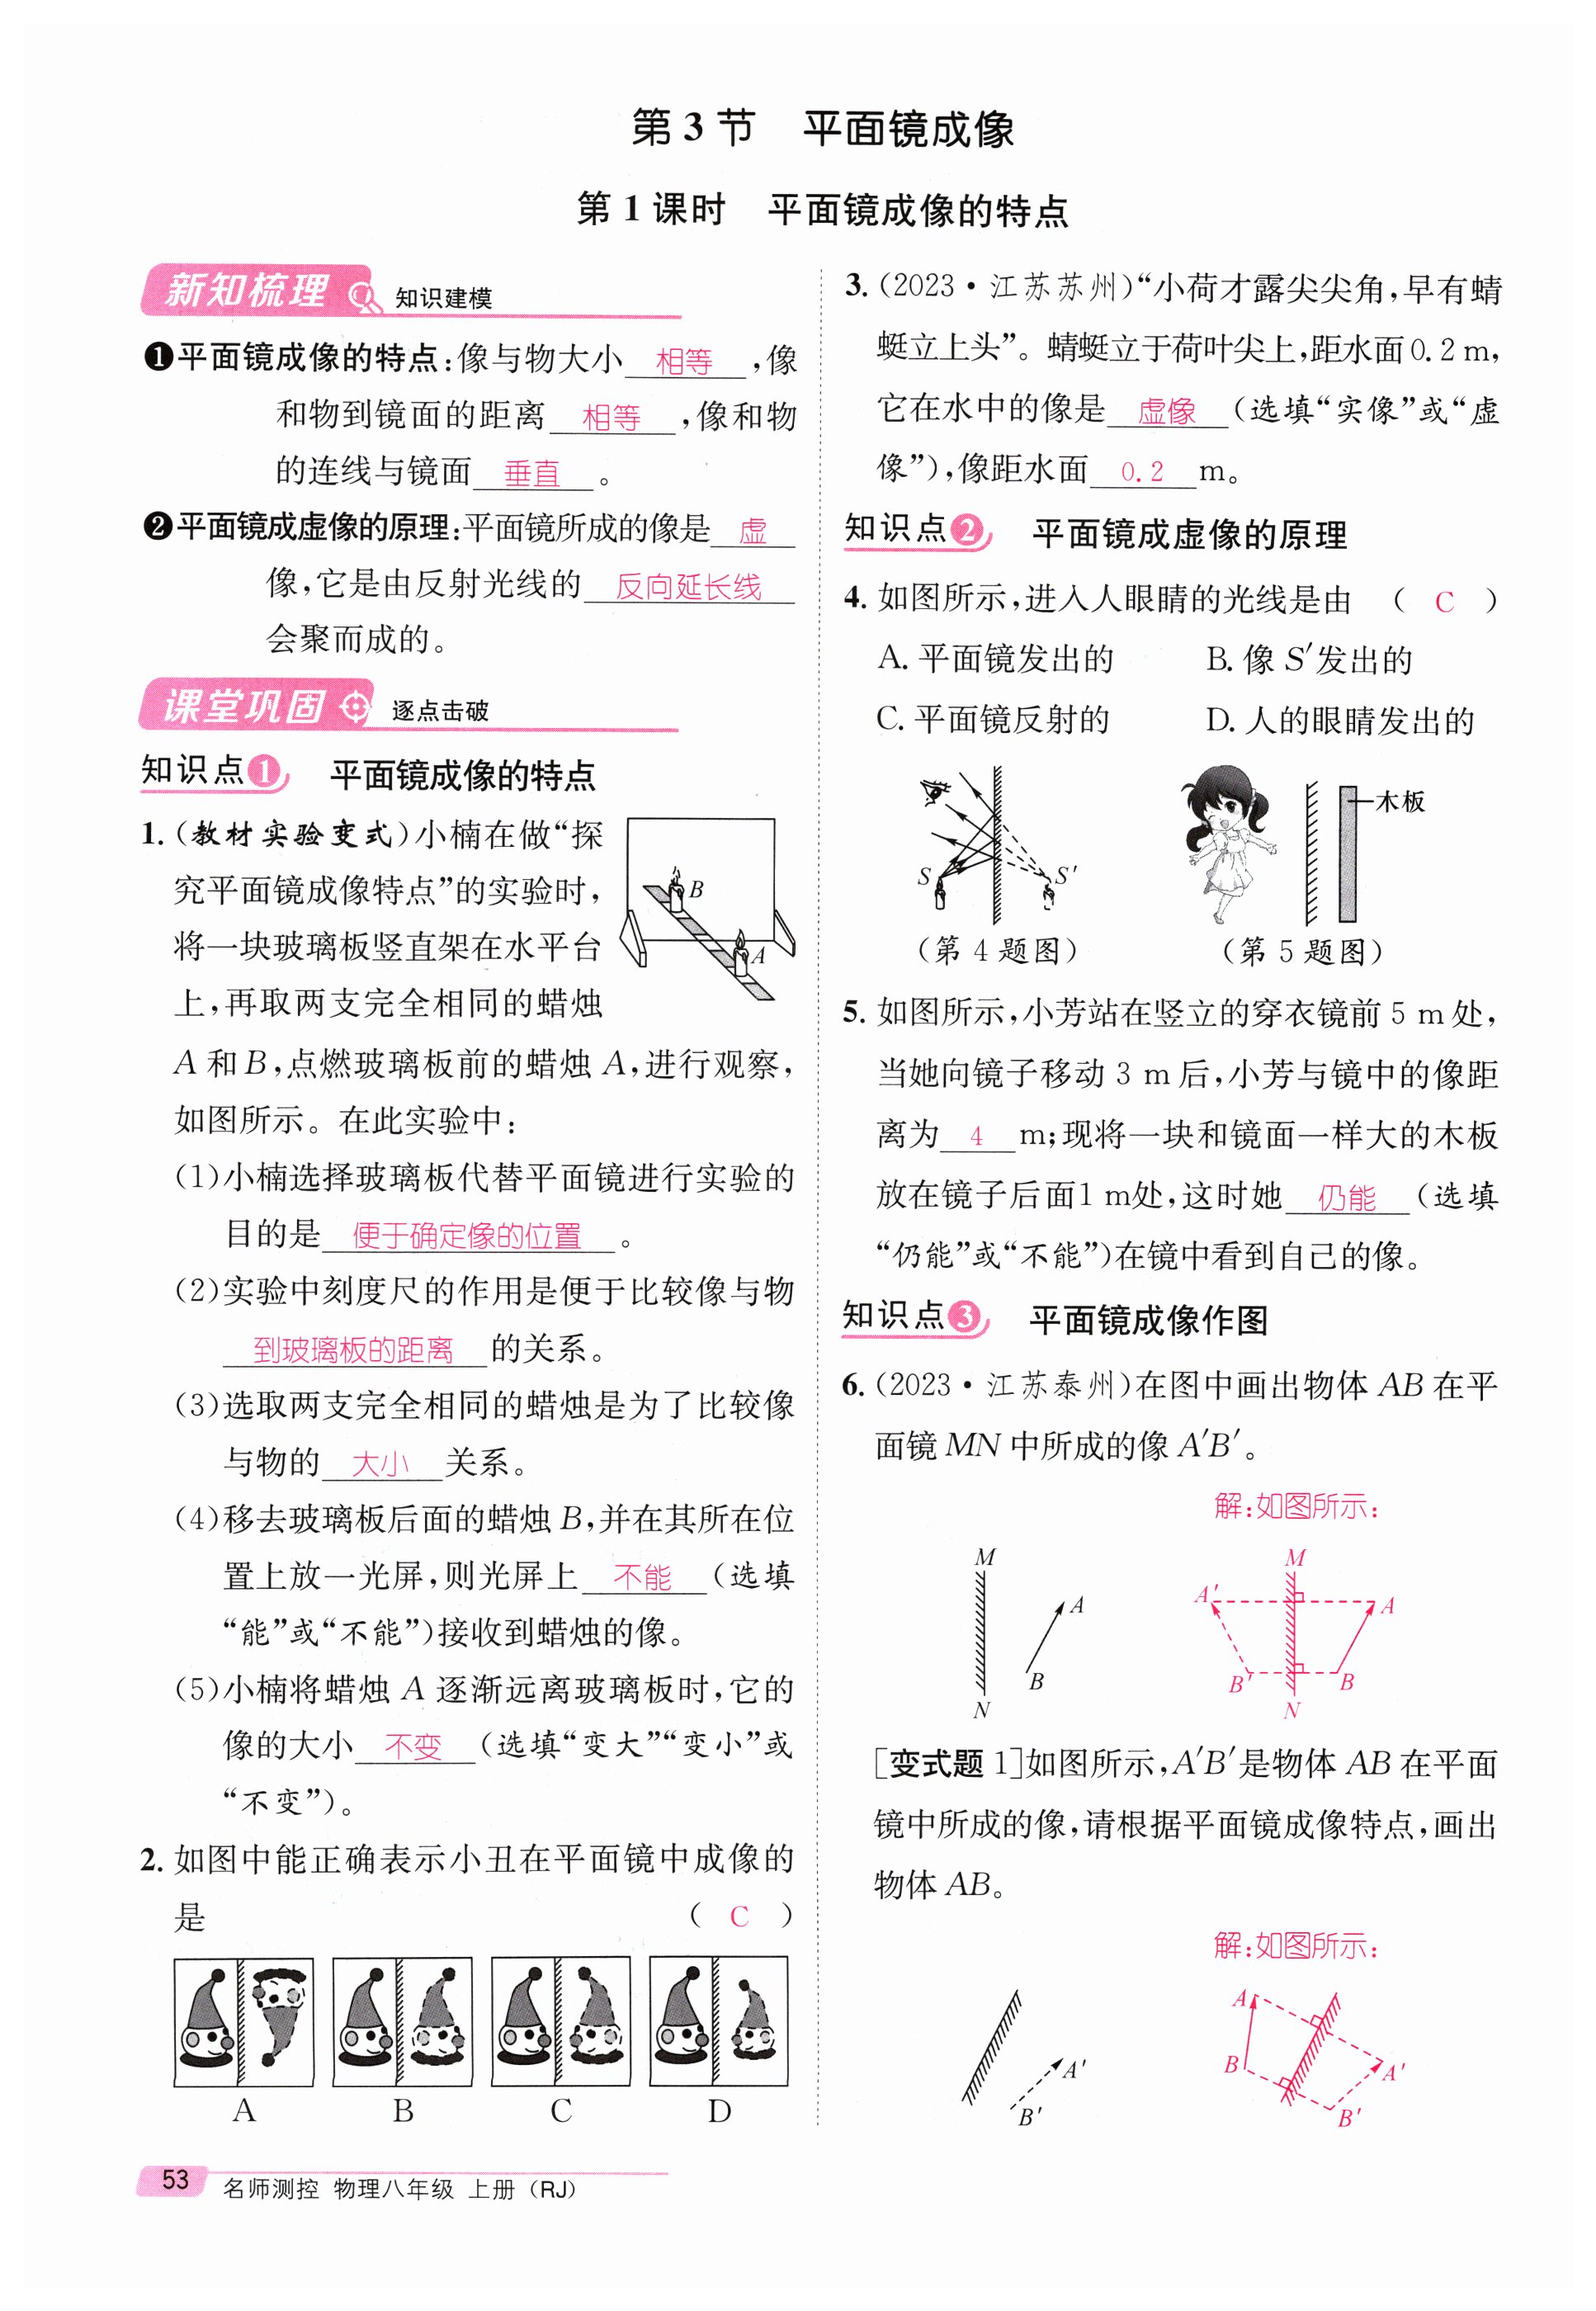 第 3 节　平面镜成像
第 1 课时　平面镜成像的特点
新知梳理　知识建模
❶平面镜成像的特点:像与物大小 相等 ,像
和物到镜面的距离 相等 ,像和物
的连线与镜面 垂直 。
❷平面镜成虚像的原理:平面镜所成的像是 虚
像,它是由反射光线的 反向延长线
会聚而成的。
课堂巩固　逐点击破
知识点1　平面镜成像的特点
1.(教材实验变式)小楠在做“探
究平面镜成像特点”的实验时,
将一块玻璃板竖直架在水平台
上,再取两支完全相同的蜡烛
B
A
A 和 B,点燃玻璃板前的蜡烛 A,进行观察,
如图所示。在此实验中:
(1)小楠选择玻璃板代替平面镜进行实验的
目的是 便于确定像的位置 。
(2)实验中刻度尺的作用是便于比较像与物
到玻璃板的距离 的关系。
(3)选取两支完全相同的蜡烛是为了比较像
与物的 大小 关系。
(4)移去玻璃板后面的蜡烛 B,并在其所在位
置上放一光屏,则光屏上 不能 (选填
“能”或“不能”)接收到蜡烛的像。
(5)小楠将蜡烛 A 逐渐远离玻璃板时,它的
像的大小 不变 (选填“变大”“变小”或
“不变”)。
2. 如图中能正确表示小丑在平面镜中成像的
是 ( C )
A B C D
3.(2023·江苏苏州)“小荷才露尖尖角,早有蜻
蜓立上头”。蜻蜓立于荷叶尖上,距水面0.2 m,
它在水中的像是 虚像 (选填“实像”或“虚
像”),像距水面 0.2 m。
知识点2　平面镜成虚像的原理
4. 如图所示,进入人眼睛的光线是由 ( C )
A. 平面镜发出的　B. 像 S′发出的
C. 平面镜反射的　D. 人的眼睛发出的
S S′
木板
(第 4 题图)　(第 5 题图)
5. 如图所示,小芳站在竖立的穿衣镜前 5 m 处,
当她向镜子移动 3 m 后,小芳与镜中的像距
离为 4 m;现将一块和镜面一样大的木板
放在镜子后面1 m处,这时她 仍能 (选填
“仍能”或“不能”)在镜中看到自己的像。
知识点3　平面镜成像作图
6.(2023·江苏泰州)在图中画出物体 AB 在平
面镜 MN 中所成的像 A′B′。
解:如图所示:
M M
A A′ A
B B′ B
N N
[变式题 1]如图所示,A′B′是物体 AB 在平面
镜中所成的像,请根据平面镜成像特点,画出
物体 AB。
解:如图所示:
A
A′ B A′
B′ B′
53 名师测控 物理八年级 上册(RJ)